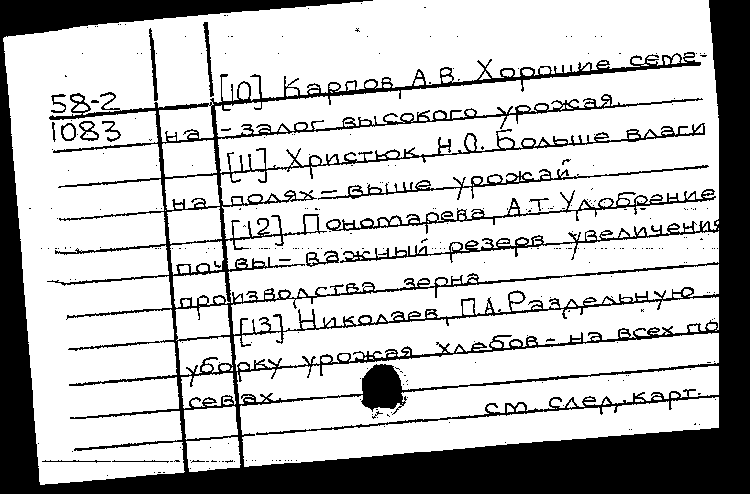 58-2 [10]. Карпов, А.В. Хорошие семе-
1083 на - залог высокого урожая.
[11]. Христюк, Н.О. Больше влаги
на полях - выше урожай.
[12]. Пономарева, А.Т. Удобрение
почвы - важный резерв увеличения
производства зерна
[13]. Николаев, П.А. Раздельную
уборку урожая хлебов - на всех по
севах.
см. след. карт.